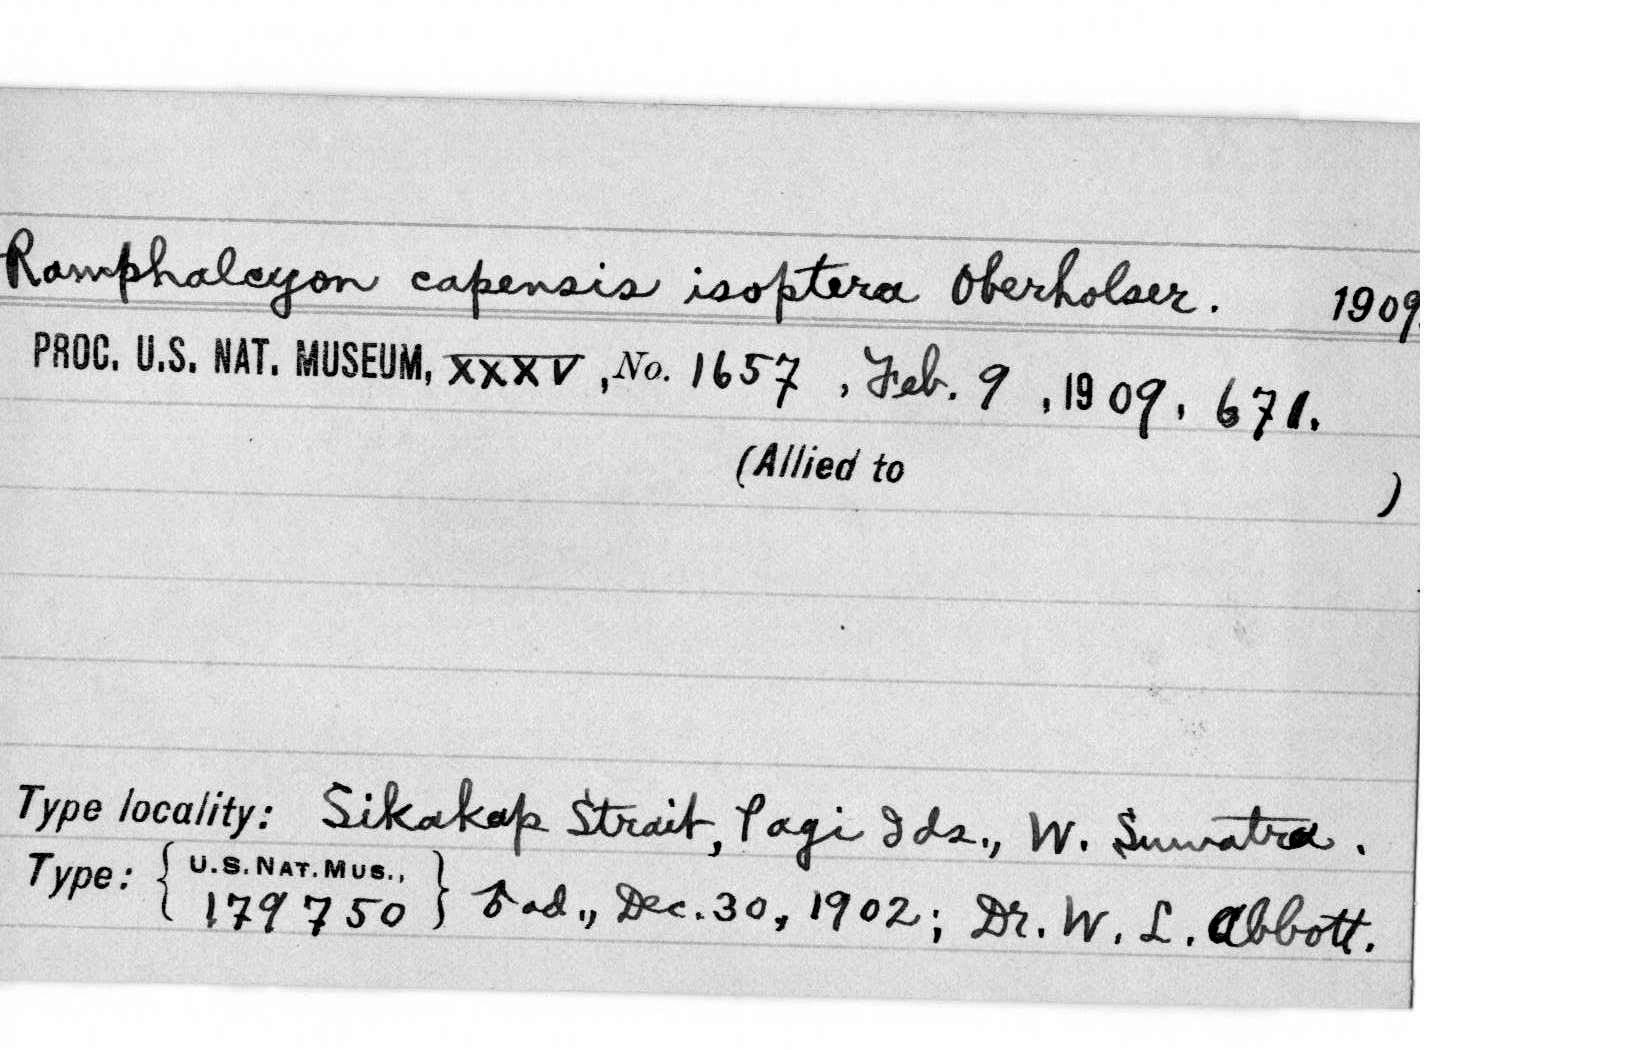 Ramphalcyon capensis isoptera Oberholser. 1909.
PROC. U.S. NAT. MUSEUM, XXXV, No. 1657, Feb. 9, 1909, 671.
(Allied to )
Type locality: Sikakap Strait, Pagi Ids., W. Sumatra.
Type: { U.S. NAT. MUS., 179750 } ♂ ad., Dec. 30, 1902; Dr. W. L. Abbott.